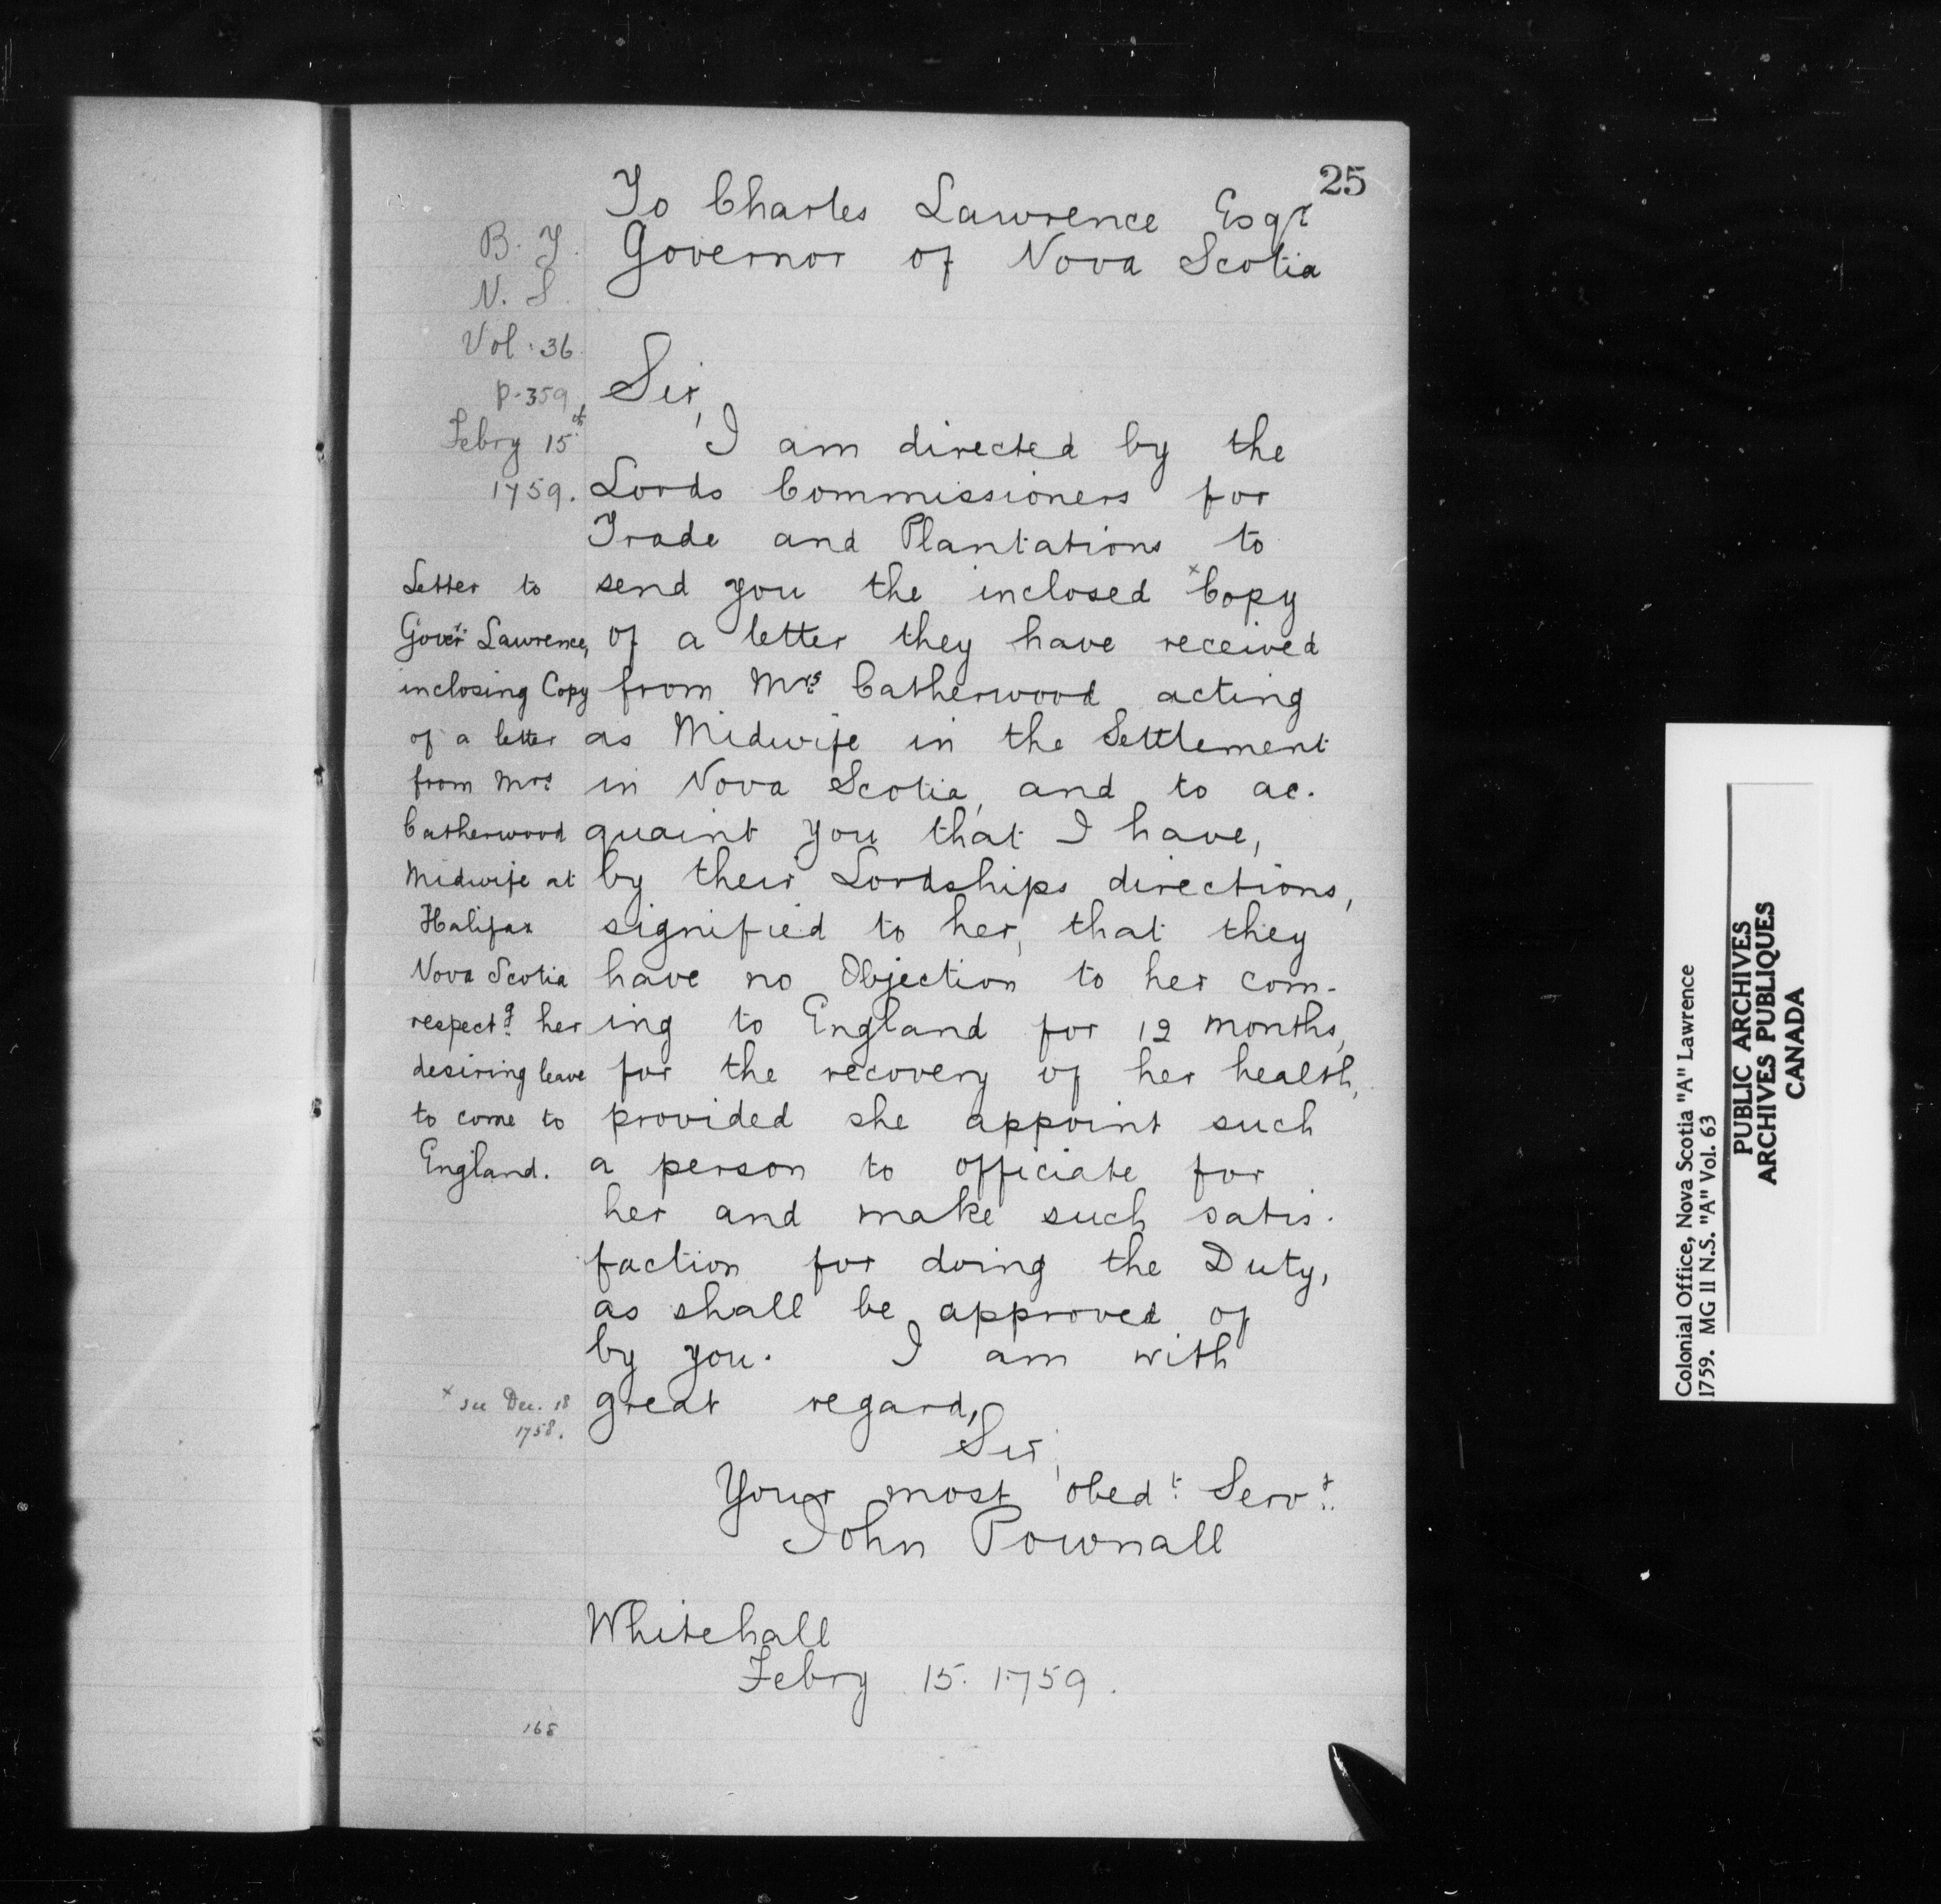 25
To Charles Lawrence Esqr
Governor of Nova Scotia
B. T.
N. S.
Vol. 36
p. 359
Febry 15th
1759.
Letter to
Goverr Lawrence,
inclosing Copy
of a letter
from Mrs
Catherwood
Midwife at
Halifax
Nova Scotia
respectg her
desiring leave
to come to
England.
Sir,
I am directed by the
Lords Commissioners for
Trade and Plantations to
send you the inclosed x Copy
of a letter they have received
from Mrs Catherwood acting
as Midwife in the Settlement
in Nova Scotia, and to ac-
quaint you that I have,
by their Lordships directions,
signified to her, that they
have no Objection to her com-
ing to England for 12 months,
for the recovery of her health,
provided she appoint such
a person to officiate for
her and make such satis-
faction for doing the Duty,
as shall be approved of
by you. I am with
great regard,
Sir,
Your most obedt Servt
John Pownall
x see Dec. 18
1758.
Whitehall
Febry 15. 1759.
168
Colonial Office, Nova Scotia "A" Lawrence
1759. MG II N.S. "A" Vol. 63
PUBLIC ARCHIVES
ARCHIVES PUBLIQUES
CANADA